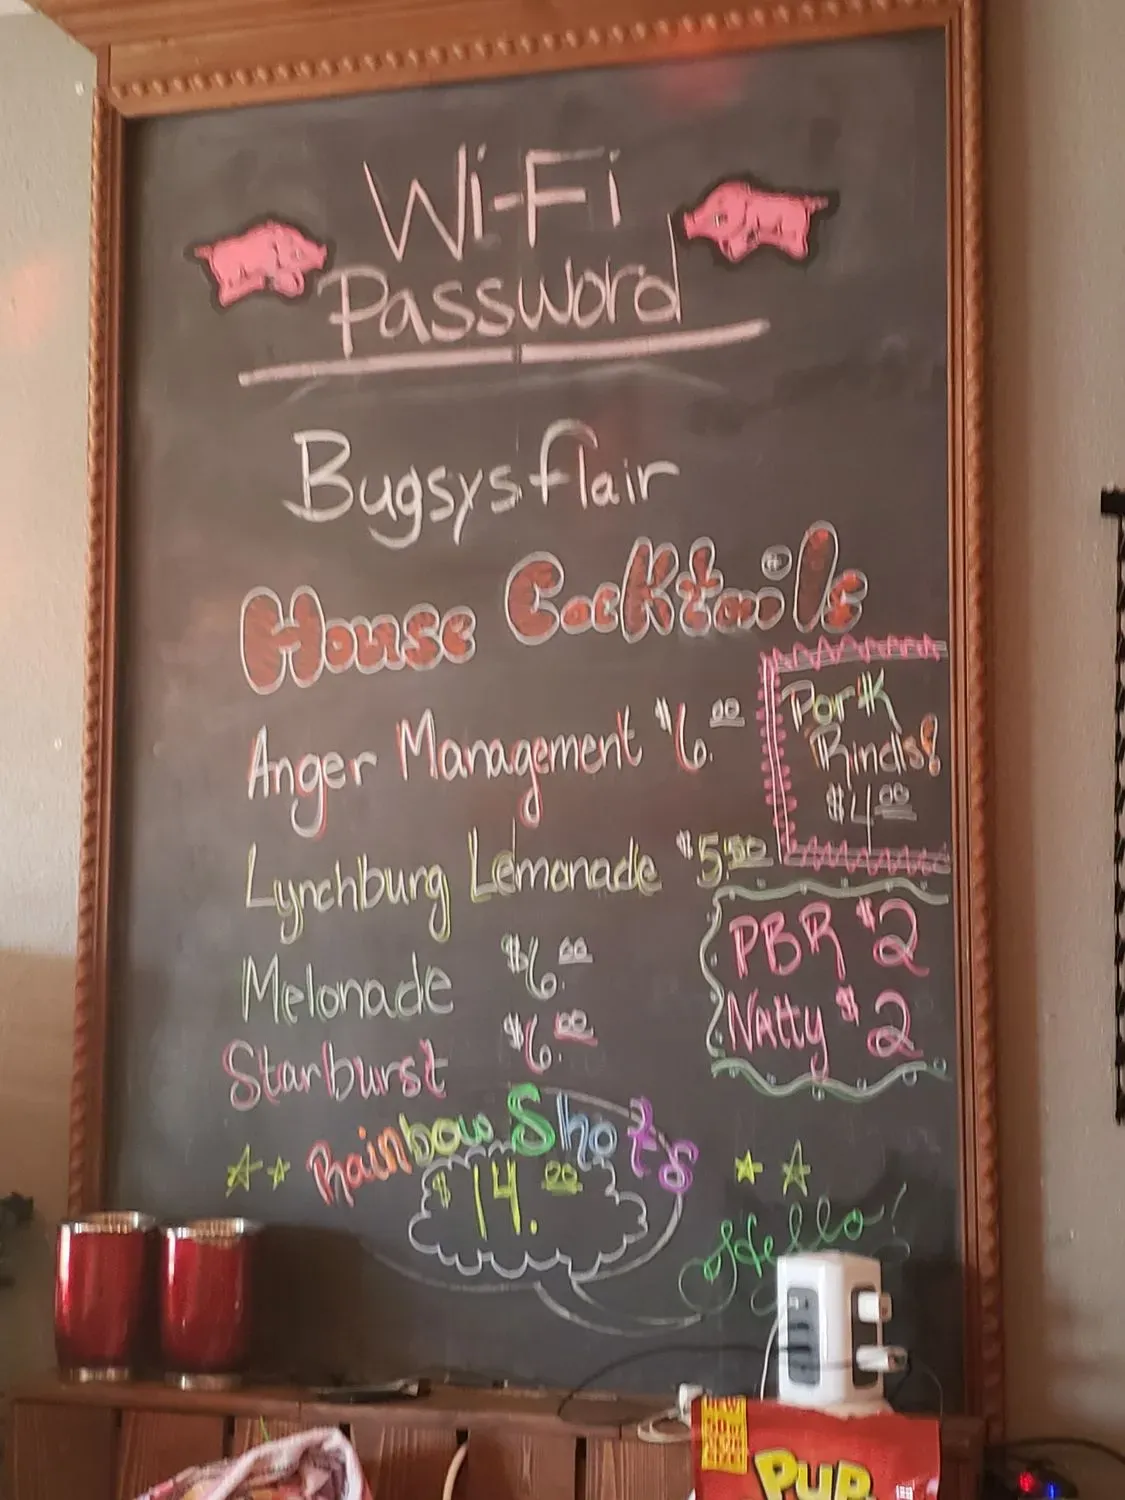 Wi-Fi
Password
Bugsysflair
House Cocktails
Anger Management $6.00
Lynchburg Lemonade $5.50
Melonade $6.00
Starburst $6.00
Pork
Rinds!
$4.00
PBR $2
Natty $2
Rainbow Shots
$14.00
Hello!
PUP